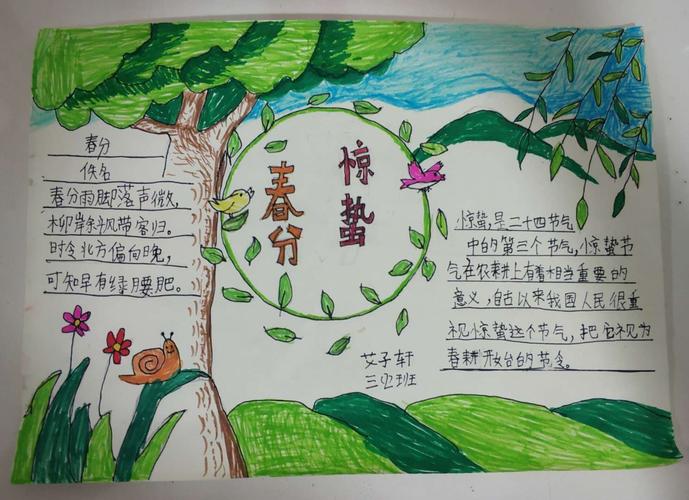 春分
佚名
春分雨脚落声微,
柳岸斜风带客归。
时令北方偏向晚,
可知早有绿腰肥。
惊蛰
春分
艾子轩
三(2)班
惊蛰,是二十四节气
中的第三个节气,惊蛰节
气在农耕上有着相当重要的
意义,自古以来我国人民很重
视惊蛰这个节气,把它视为
春耕开始的节令。